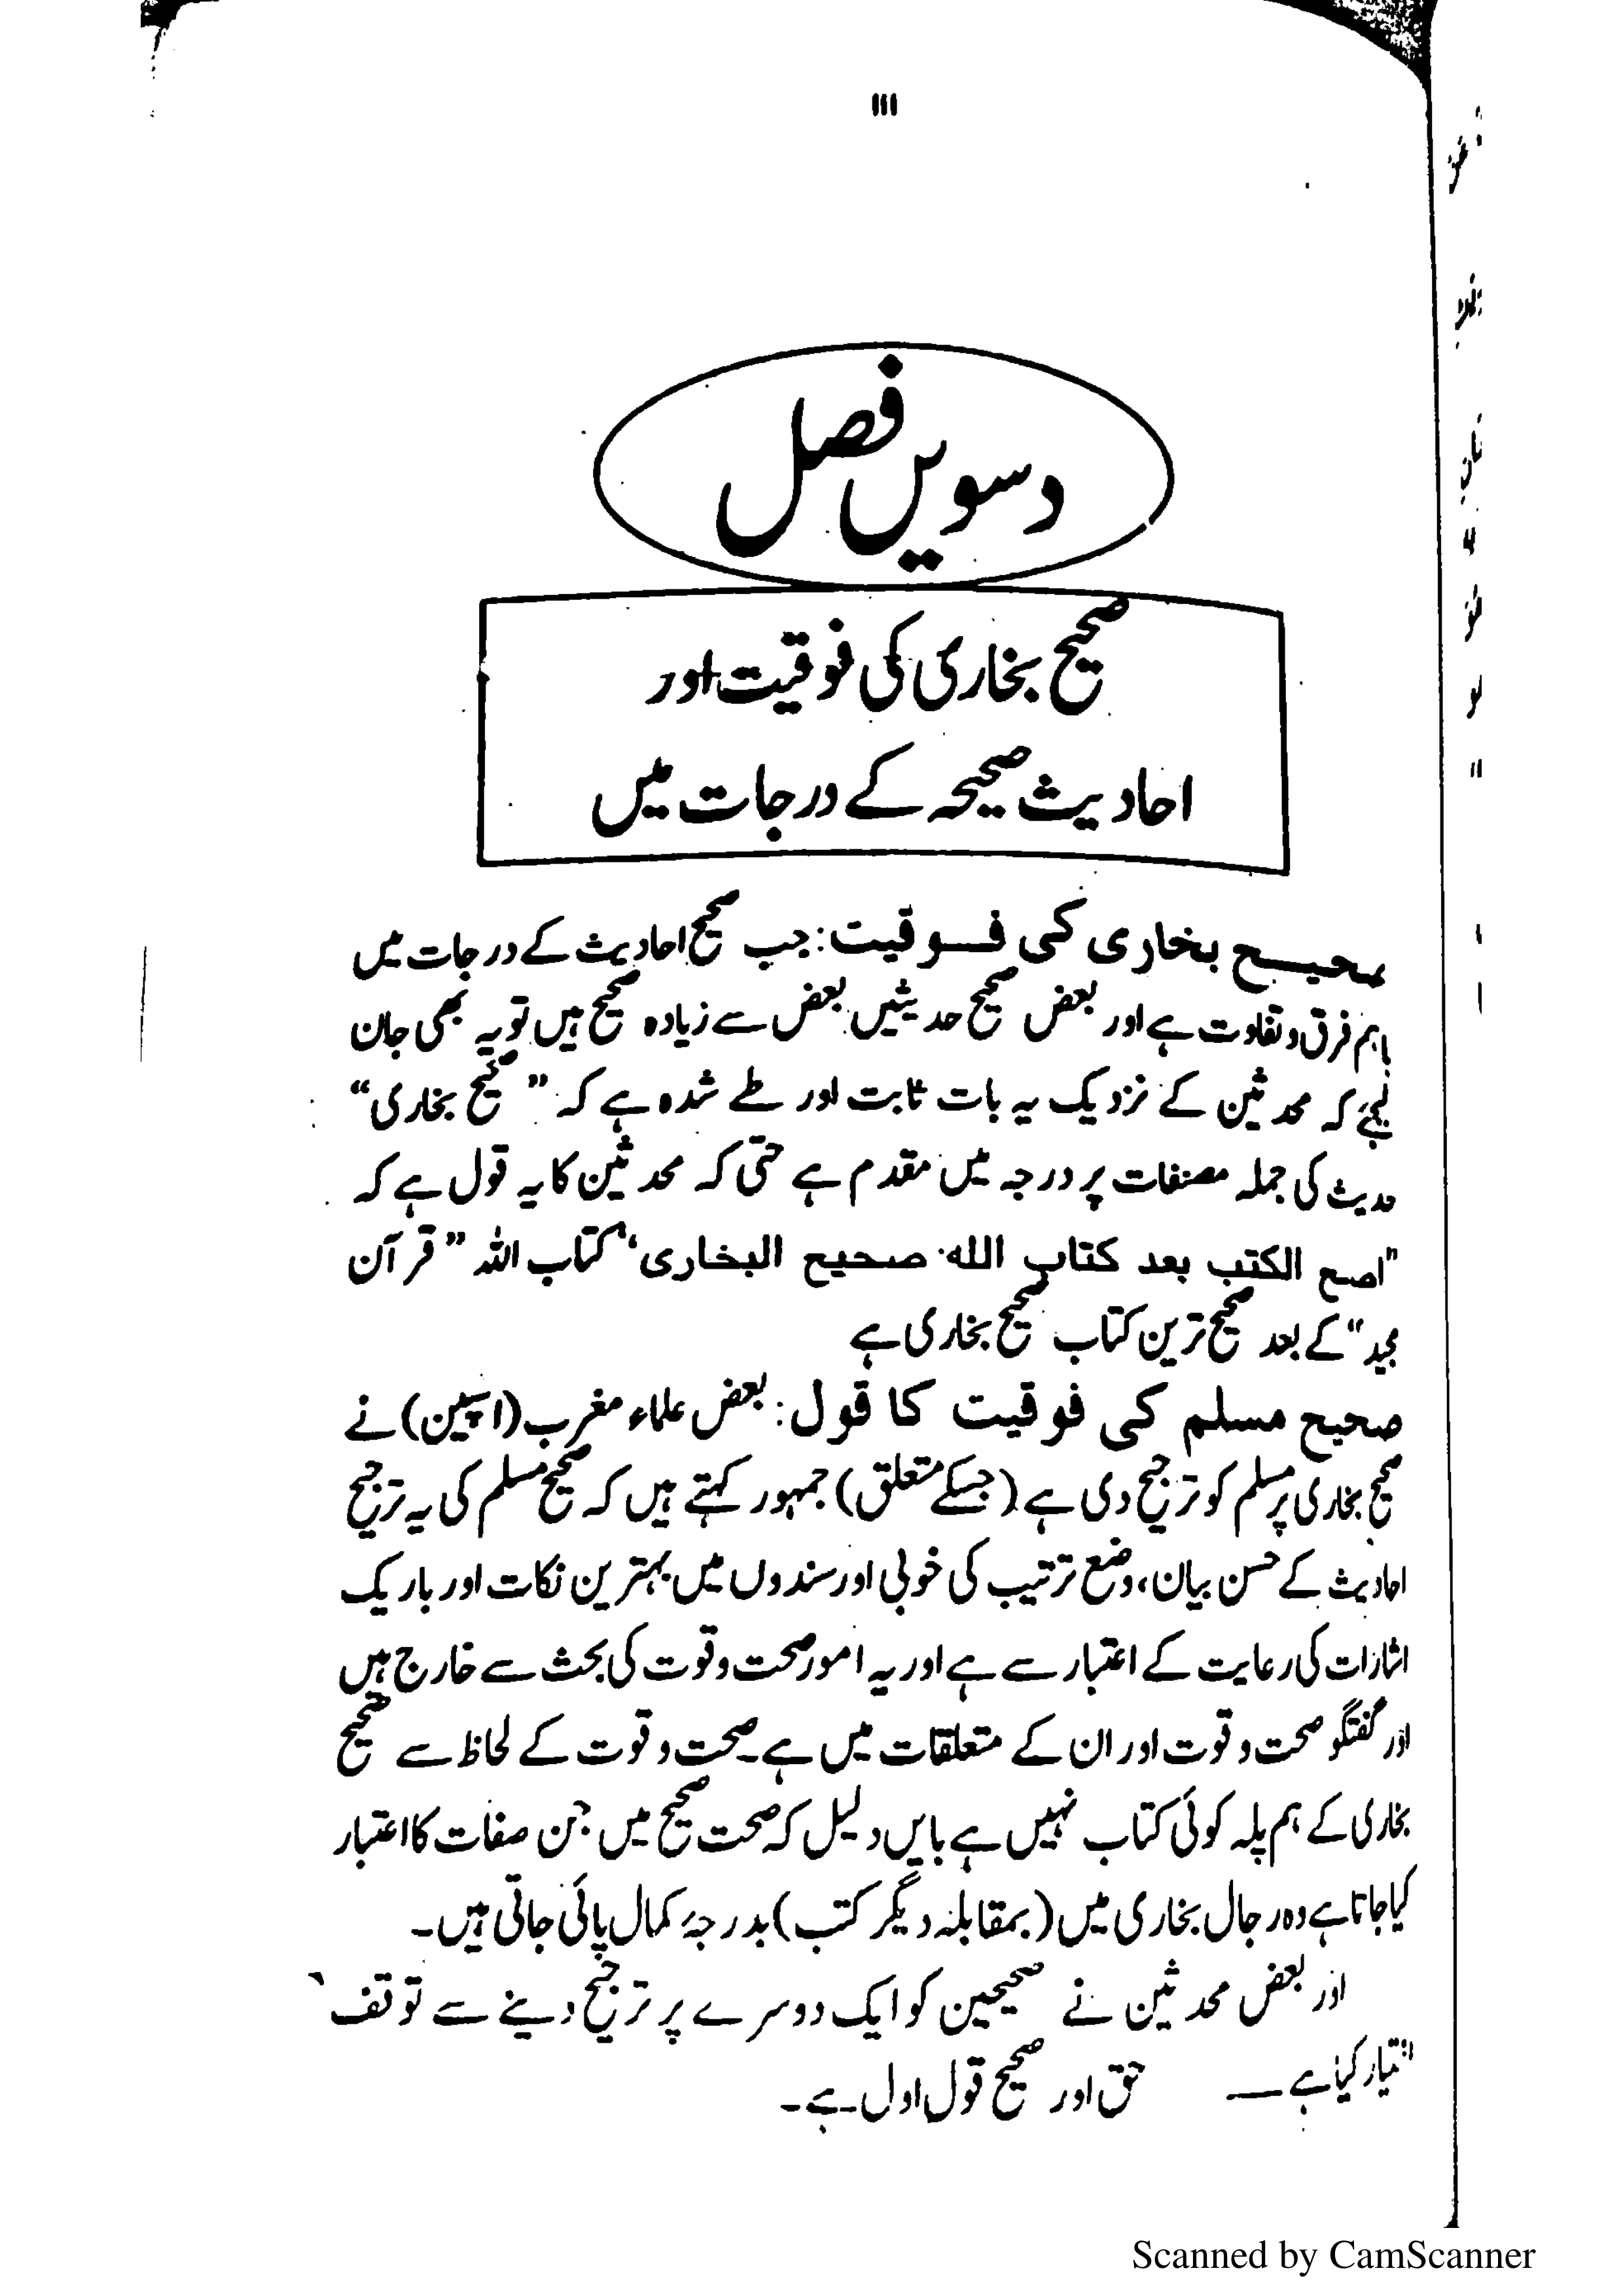 ۱۱۱
دسویں فصل
صحیح بخاری کی فوقیت اور
احادیث صحیحہ کے درجات میں
صحیح بخاری کی فوقیت: جب صحیح احادیث کے درجات میں
باہم فرق و تفاوت ہے اور بعض صحیح حدیثیں بعض سے زیادہ صحیح ہیں تو یہ بھی جان
لیجئے کہ محدثین کے نزدیک یہ بات ثابت اور طے شدہ ہے کہ ”صحیح بخاری“
حدیث کی جملہ مصنفات پر درجہ میں مقدم ہے حتی کہ محدثین کا یہ قول ہے کہ
"اصح الکتب بعد کتاب الله صحیح البخاری" کتاب اللہ ”قرآن
مجید“ کے بعد صحیح ترین کتاب صحیح بخاری ہے
صحیح مسلم کی فوقیت کا قول: بعض علماء مغرب (اسپین) نے
صحیح بخاری پر مسلم کو ترجیح دی ہے (جسکے متعلق) جمہور کہتے ہیں کہ صحیح مسلم کی یہ ترجیح
احادیث کے حسن بیان، وضع ترتیب کی خوبی اور سندوں میں بہترین نکات اور باریک
اشارات کی رعایت کے اعتبار سے ہے اور یہ امور صحت و قوت کی بحث سے خارج ہیں
اور گفتگو صحت و قوت اور ان کے متعلقات میں ہے۔ صحت و قوت کے لحاظ سے صحیح
بخاری کے ہم پلہ کوئی کتاب نہیں ہے بایں دلیل کہ صحت صحیح میں جن صفات کا اعتبار
کیا جاتا ہے وہ رجال بخاری میں (بمقابلہ دیگر کتب) بدرجۂ کمال پائی جاتی ہیں۔
اور بعض محدثین نے صحیحین کو ایک دوسرے پر ترجیح دینے سے توقف
اختیار کیا ہے ــــ حق اور صحیح قول اول ہے۔
Scanned by CamScanner